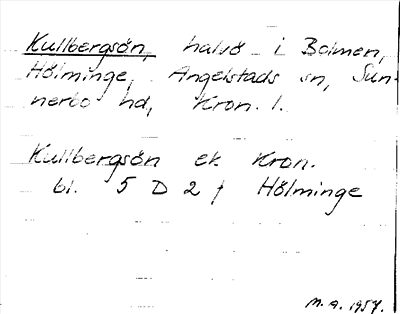 Kullbergsön, halvö i Bolmen,
Hölminge, Angelstads sn, Sun-
nerbo hd, Kron. l.
Kullbergsön ek Kron.
bl. 5 D 2 f Hölminge
M. A. 1957.